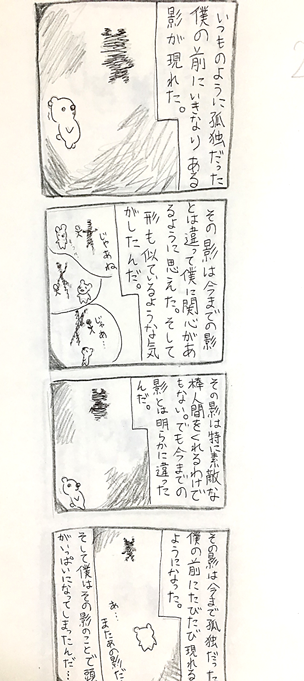 いつものように孤独だった
僕の前にいきなりある
影が現れた。
その影は今までの影
とは違って僕に関心があ
るように思えた。そして
形も似ているような気
がしたんだ。
じゃあね
じゃあ…
その影は特に素敵な
棒人間をくれるわけで
もない。でも今までの
影とは明らかに違った
んだ。
その影は今まで孤独だった
僕の前にたびたび現れる
ようになった。
あ…
またあの影だ
そして僕はその影のことで頭
がいっぱいになってしまったんだ…